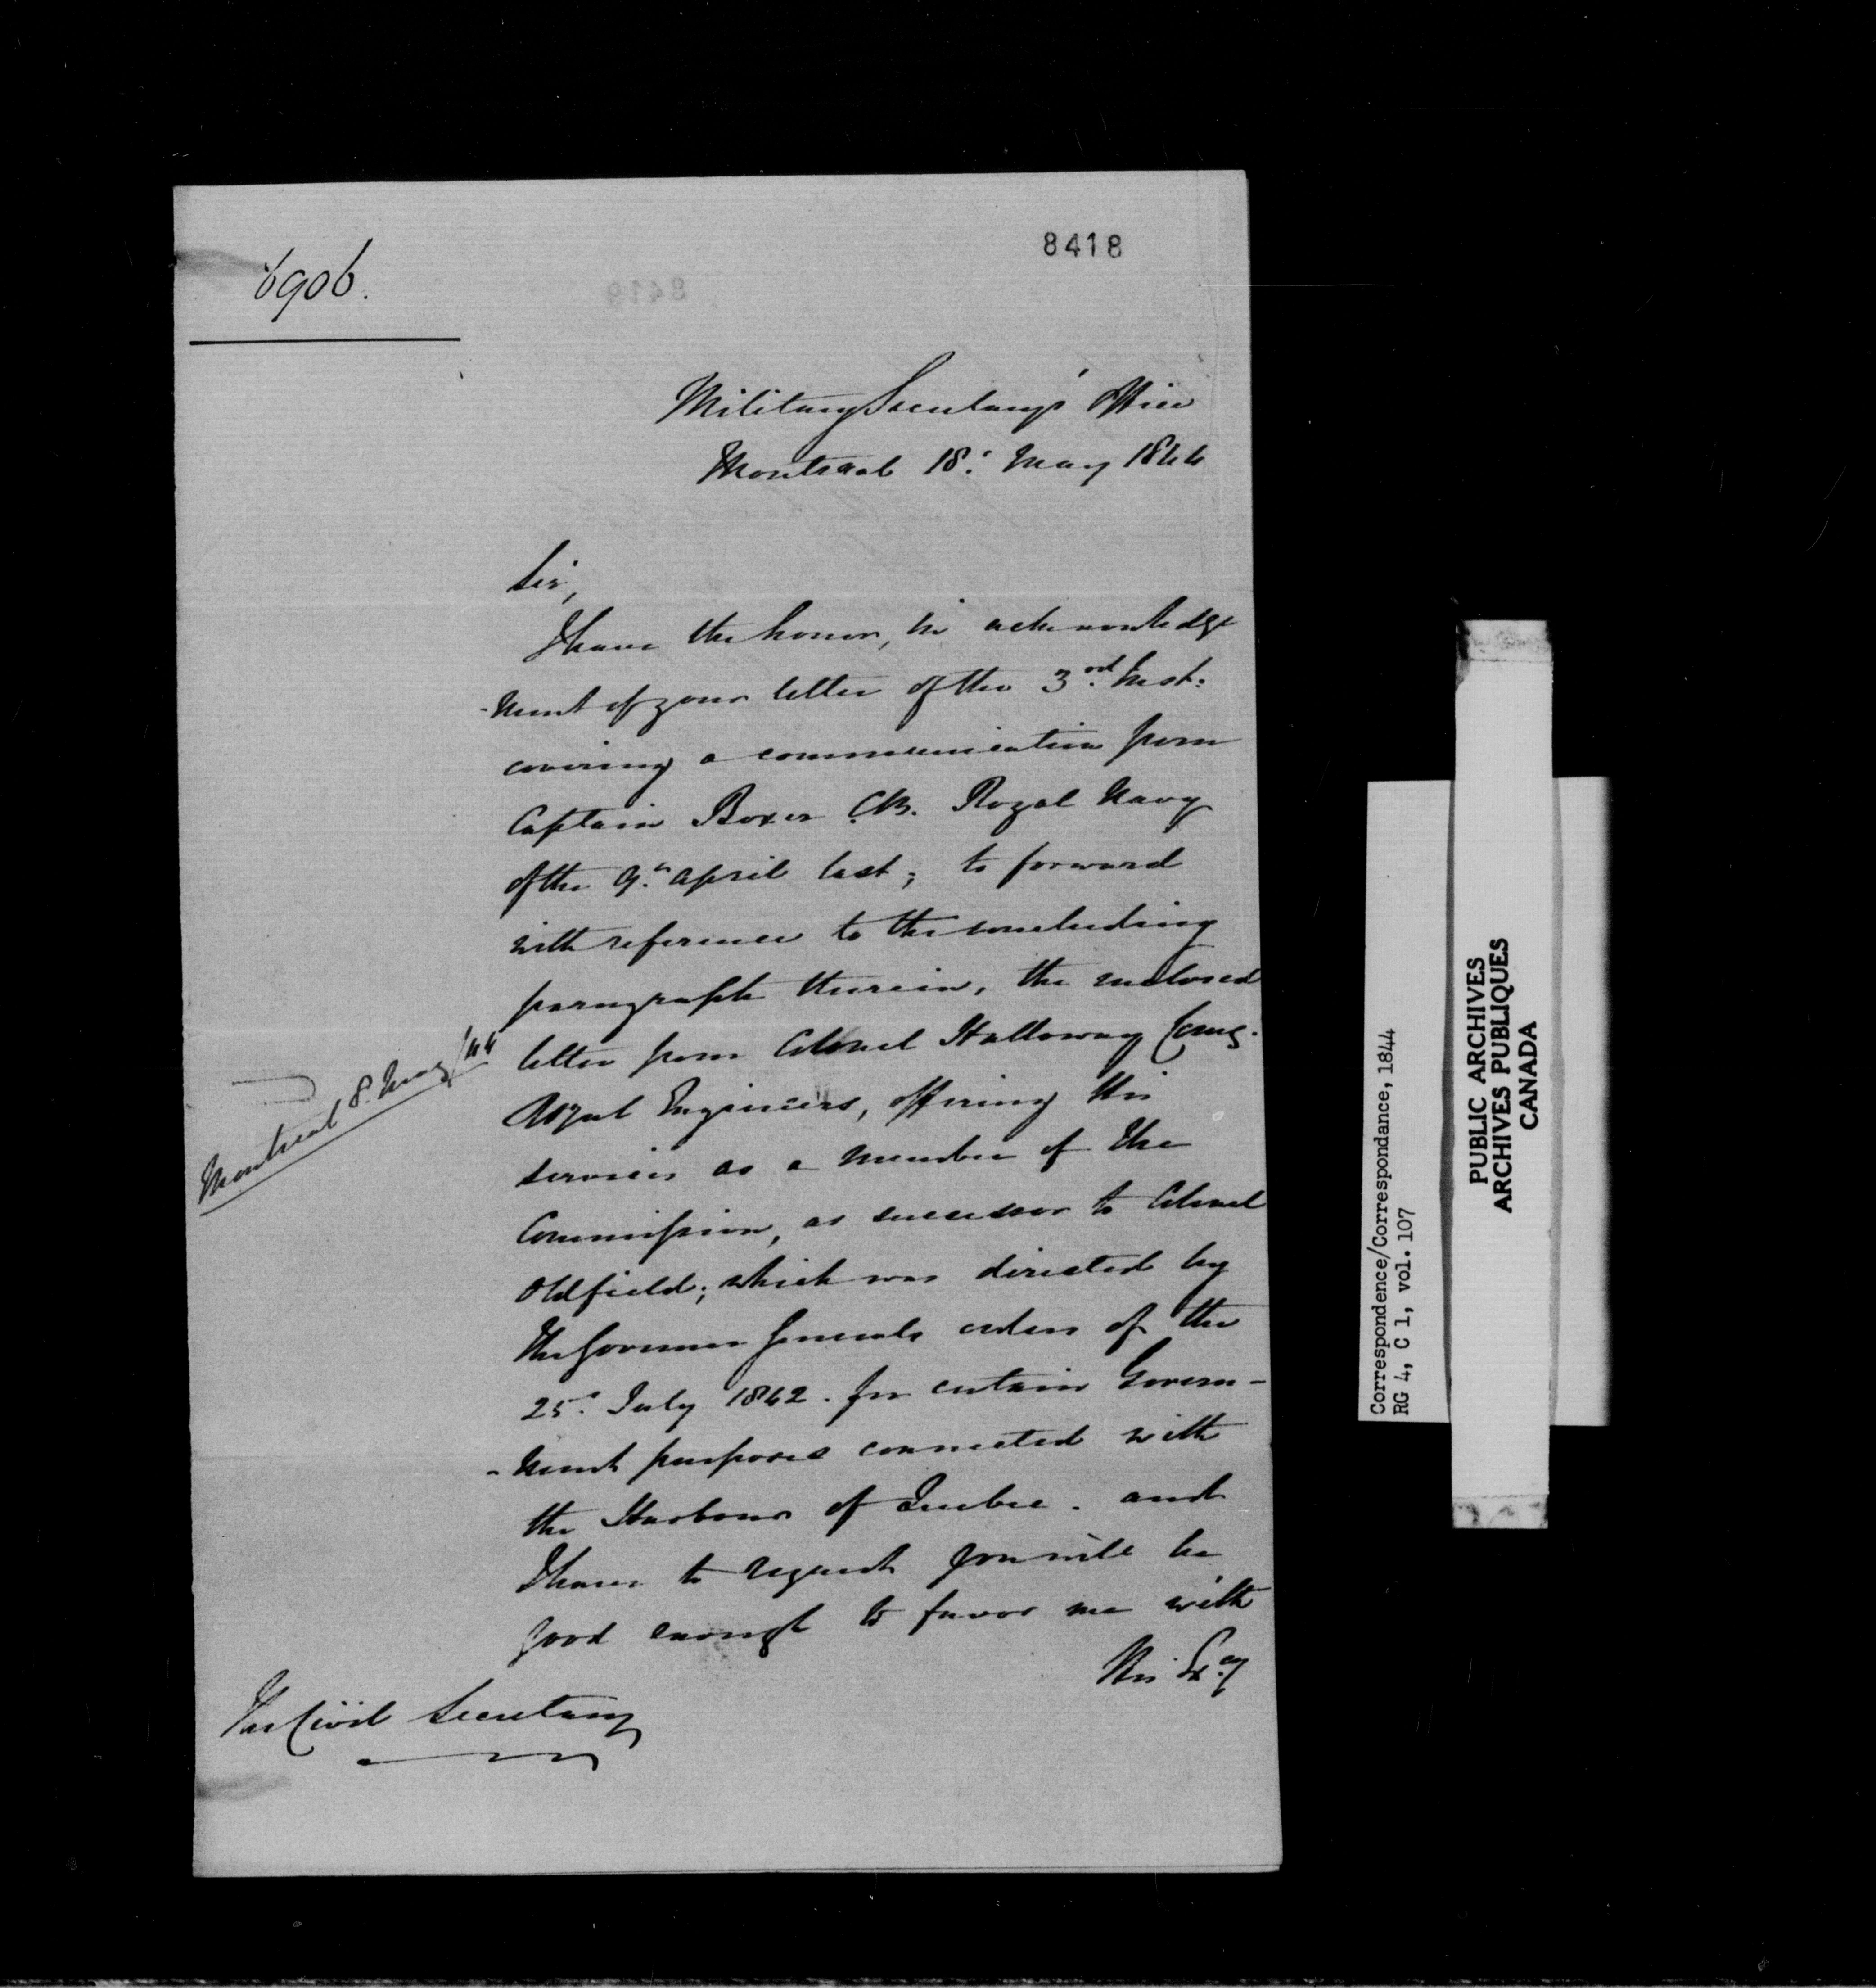 8418
6906.
Military Secretary's Office
Montreal 18: May 1844
Sir,
I have the honor, in acknowledge
-ment of your letter of the 3rd. Inst:
covering a communication from
Captain Boxer C.B. Royal Navy
of the 9th. April last; to forward
with reference to the concluding
paragraph therein, the enclosed
letter from Colonel Holloway Comg.
Royal Engineers, offering his
services as a member of the
Commission, as successor to Colonel
Oldfield; which was directed by
the Governor Generals orders of the
25: July 1842. for certain Govern-
-ment purposes connected with
the Harbour of Quebec. and
I have to request you will be
good enough to favor me with
His Excy
Montreal 8. May/44
The Civil Secretary
Correspondence/Correspondance, 1844
RG 4, C 1, vol. 107
PUBLIC ARCHIVES
ARCHIVES PUBLIQUES
CANADA